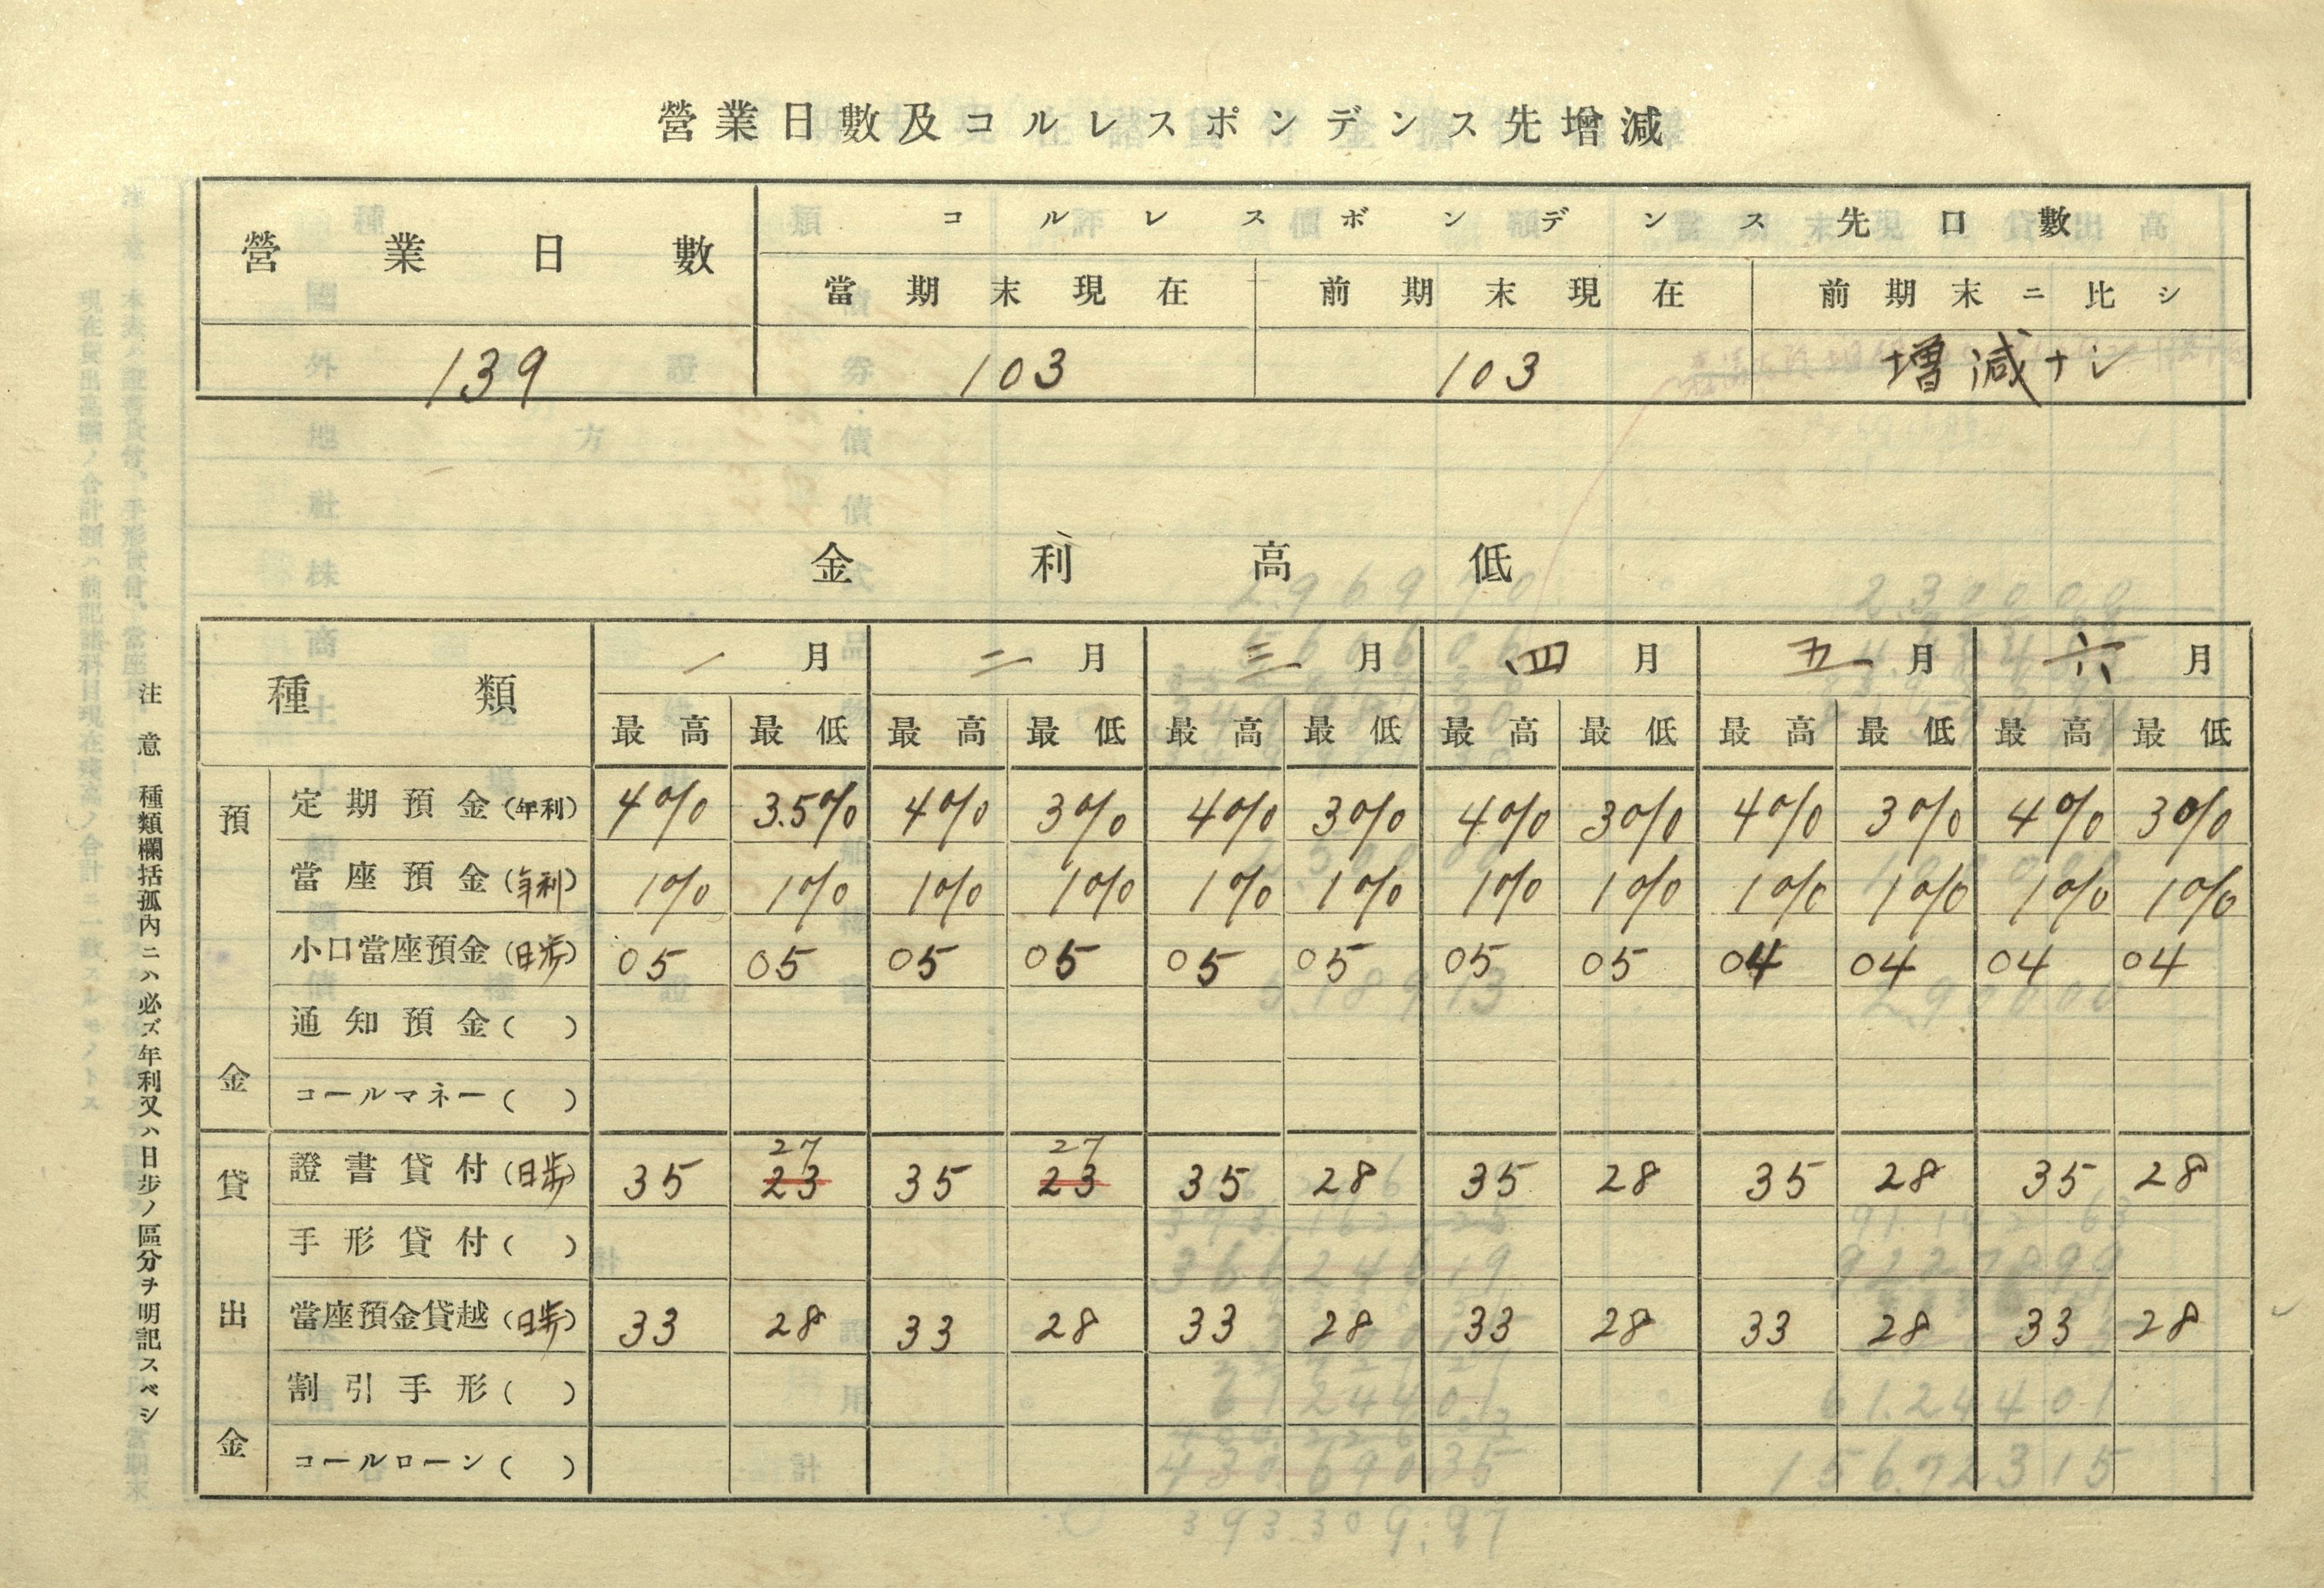 營業日數及コルレスポンデンス先增減
營業日數 コルレスポンデンス先口數
當期末現在 前期末現在 前期末ニ比シ
139 103 103 增減ナシ
金利高低
種類 一月 二月 三月 四月 五月 六月
最高 最低 最高 最低 最高 最低 最高 最低 最高 最低 最高 最低
預金
定期預金(年利) 4% 3.5% 4% 3% 4% 3% 4% 3% 4% 3% 4% 3%
當座預金(年利) 1% 1% 1% 1% 1% 1% 1% 1% 1% 1% 1% 1%
小口當座預金(日歩) 05 05 05 05 05 05 05 05 04 04 04 04
通知預金( )
コールマネー( )
貸出金
27 27
證書貸付(日歩) 35 23 35 23 35 28 35 28 35 28 35 28
手形貸付( )
當座預金貸越(日歩) 33 28 33 28 33 28 33 28 33 28 33 28
割引手形( )
コールローン( )
注意 種類欄括孤內ニハ必ズ年利又ハ日步ノ區分ヲ明記スベシ